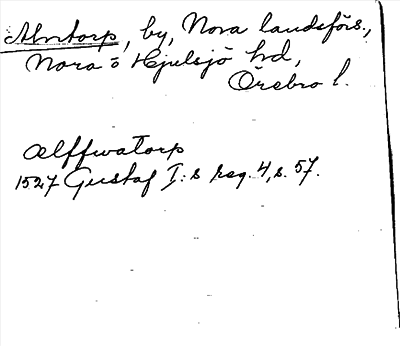 Alntorp, by, Nora landsförs.,
Nora o Hjulsjö hd,
Örebro l.
Ælffwatorp
1527 Gustaf I:s reg. 4, s. 57.